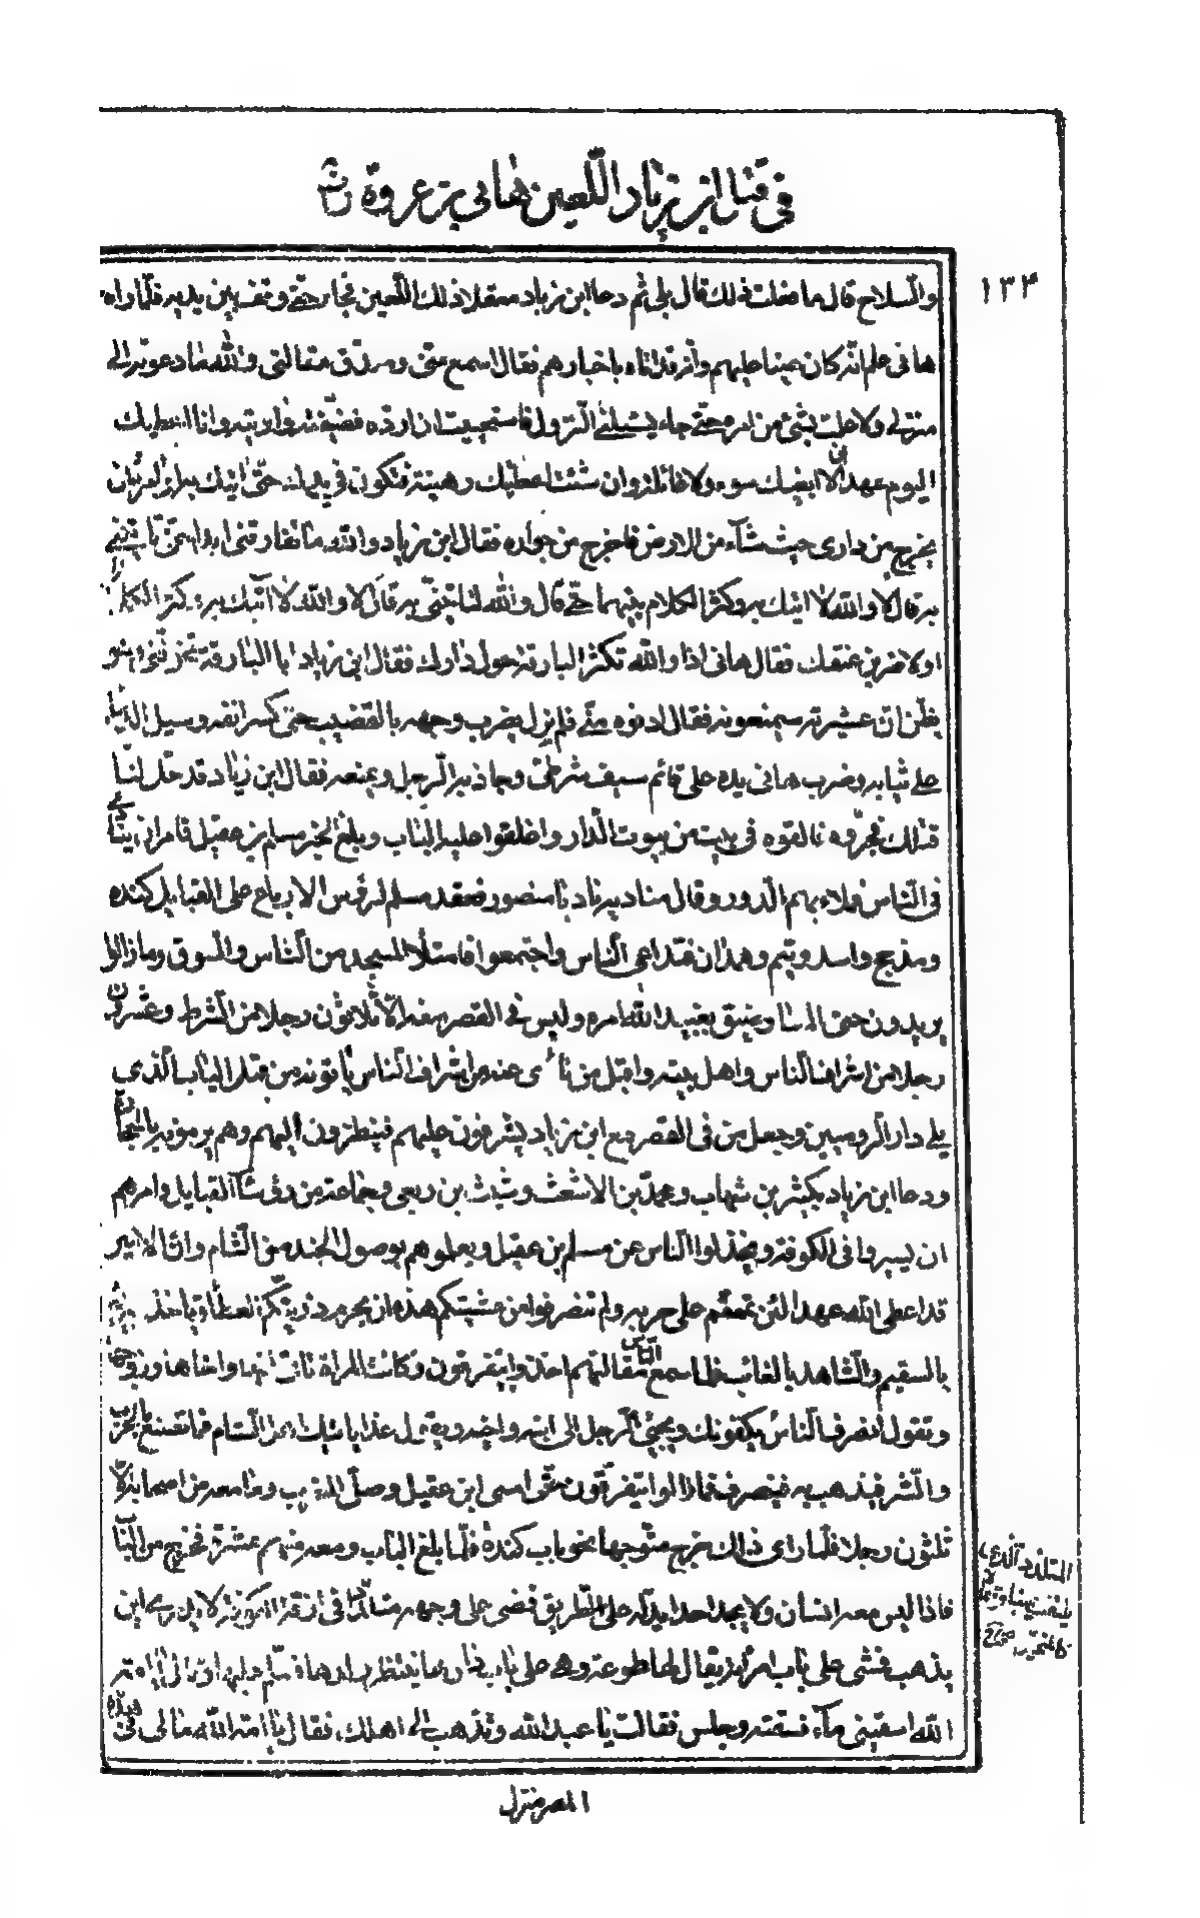 في قتل ابن زياد اللعين هاني بن عروة ره
١٣٤
والسلاح قال ما فعلت ذلك قال بلى ثم دعا ابن زياد معقلا ذلك اللعين فجاء حتى وقف بين يديه فلما راه
هاني علم انه كان عينا عليهم وانه قد اتاه باخبارهم فقال اسمع منى وصدق مقالتى والله ما دعوته الى
منزلى ولا علمت بشئ من امره حتى جاء يسئلنى النزول فاستحييت ان ارده فضيفته واويته وانا اعطيك
اليوم عهدا ان لا ابغيك سوء ولا غائلة وان شئت اعطيتك رهينة فتكون في يدك حتى اتيك بها او امره ان
يخرج من دارى حيث شاء من الارض فاخرج من جواره فقال ابن زياد والله ما تفارقنى ابدا حتى تاتينى
به قال لا والله لا اتيك به وكثر الكلام بينهما حتى قال والله لتاتينى به قال لا والله لا آتيك به وكثر الكلام
او لاضربن عنقك فقال هاني اذا والله تكثر البارقة حول دارك فقال ابن زياد ابا البارقة تخوفنى وهو
يظن ان عشيرته سيمنعونه فقال ادنوه منى فلم يزل يضرب وجهه بالقضيب حتى كسر انفه وسيل الدماء
على ثيابه وضرب هاني يده على قائم سيف شرطى وجاذبه الرجل ويمنعه فقال ابن زياد قد حل لنا
قتلك فجروه فالقوه في بيت من بيوت الدار واغلقوا عليه الباب وبلغ الخبر مسلم بن عقيل فامر ان ينادى
في الناس فملاء بهم الدور وقال مناديه ناد يا منصور فعقد مسلم لرؤس الارباع على القبايل كنده
ومذحج واسد وتميم وهمدان فتداعى الناس واجتمعوا فامتلأ المسجد من الناس والسوق وما زالوا
يريدون حتى المسا وضيق بعبيد الله امره وليس في القصر معه الا ثلاثون رجلا من الشرط وعشرون
رجلا من اشراف الناس واهل بيته واقبل من نائى عنه من اشراف الناس ياتونه من قبل الباب الذى
يلى دار الروميين وجعل من في القصر مع ابن زياد يشرفون عليهم فينظرون اليهم وهم يرمونهم بالحجارة
ودعا ابن زياد بكثير بن شهاب ومحمد بن الاشعث وشبث بن ربعى وجماعة من رؤساء القبايل وامرهم
ان يسيروا في الكوفة ويخذلوا الناس عن مسلم بن عقيل ويعلموهم بوصول الجند من الشام وان الامير
قد اعطى الله عهدا لئن تممتم على حربه ولم تنصرفوا من عشيتكم هذه ان يحرم ذريتكم العطاء وياخذ البرئ
بالسقيم والشاهد بالغائب فلما سمع الناس مقالتهم اخذوا يتفرقون وكانت المراة تاتى ابنها واخاها وزوجها
وتقول انصرف الناس يكفونك ويجئ الرجل الى ابنه واخيه ويقول غدا ياتيك اهل الشام فما تصنع بالحرب
والشر فيذهب به فينصرف فما زالوا يتفرقون حتى امسى ابن عقيل وصلى المغرب وما معه من اصحابه الا
ثلثون رجلا فلما راى ذلك خرج متوجها نحو باب كنده فلما بلغ الباب ومعه منهم عشرة فخرج من الباب
فاذا ليس معه انسان ولا يجد احدا يدله على الطريق فمضى على وجهه متلددا في ازقة الكوفة لا يدرى اين
يذهب فمشى على باب امرأة يقال لها طوعة وهى على باب دارها تنتظر ولدها فسلم عليها وقال يا امة
الله اسقينى ماء فسقته وجلس فقالت يا عبد الله وتذهب الى اهلك فقال يا امة الله مالى في هذه
المصر منزل
المتلدد الذى
يلتفت يمينا وشمالا
كالمتحير صح